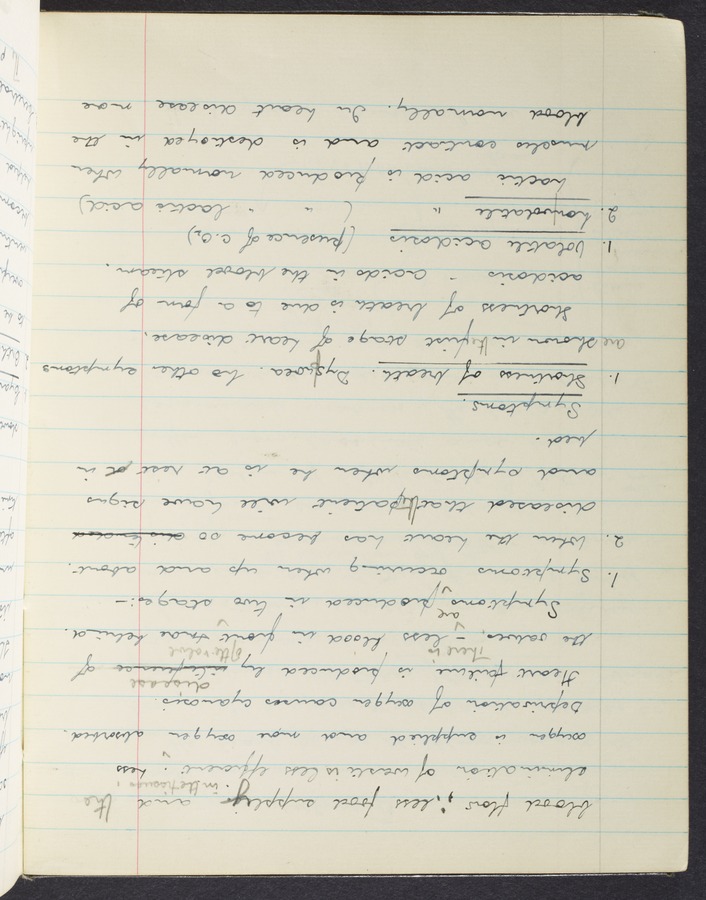 blood flow, ; less food supply. and the
in the tissues,
elimination of waste is less efficient. Less
oxygen is supplied and more oxygen absorbed.
Deprivation of oxygen causes cyanosis.
disease
Heart failure is produced by of
There is of the valve
the valves, – less blood in front more behind.
are
Symptoms produced in two stages:–
1. Symptoms occuring when up and about.
2. When the heart has become so distended
diseased that the patient will have signs
and symptoms when he is at rest in
bed.
Symptoms.
1. Shortness of breath. Dyspnoea. No other symptoms
are shown in the first stage of heart disease.
Shortness of breath is due to a form of
acidosis - acids in the blood stream.
1. Volatile acidosis (presence of C.O2)
2. Nonvolatile " ( " " lactic acid)
Lactic acid is produced normally when
muscles contract and is destroyed in the
blood normally. In heart disease more